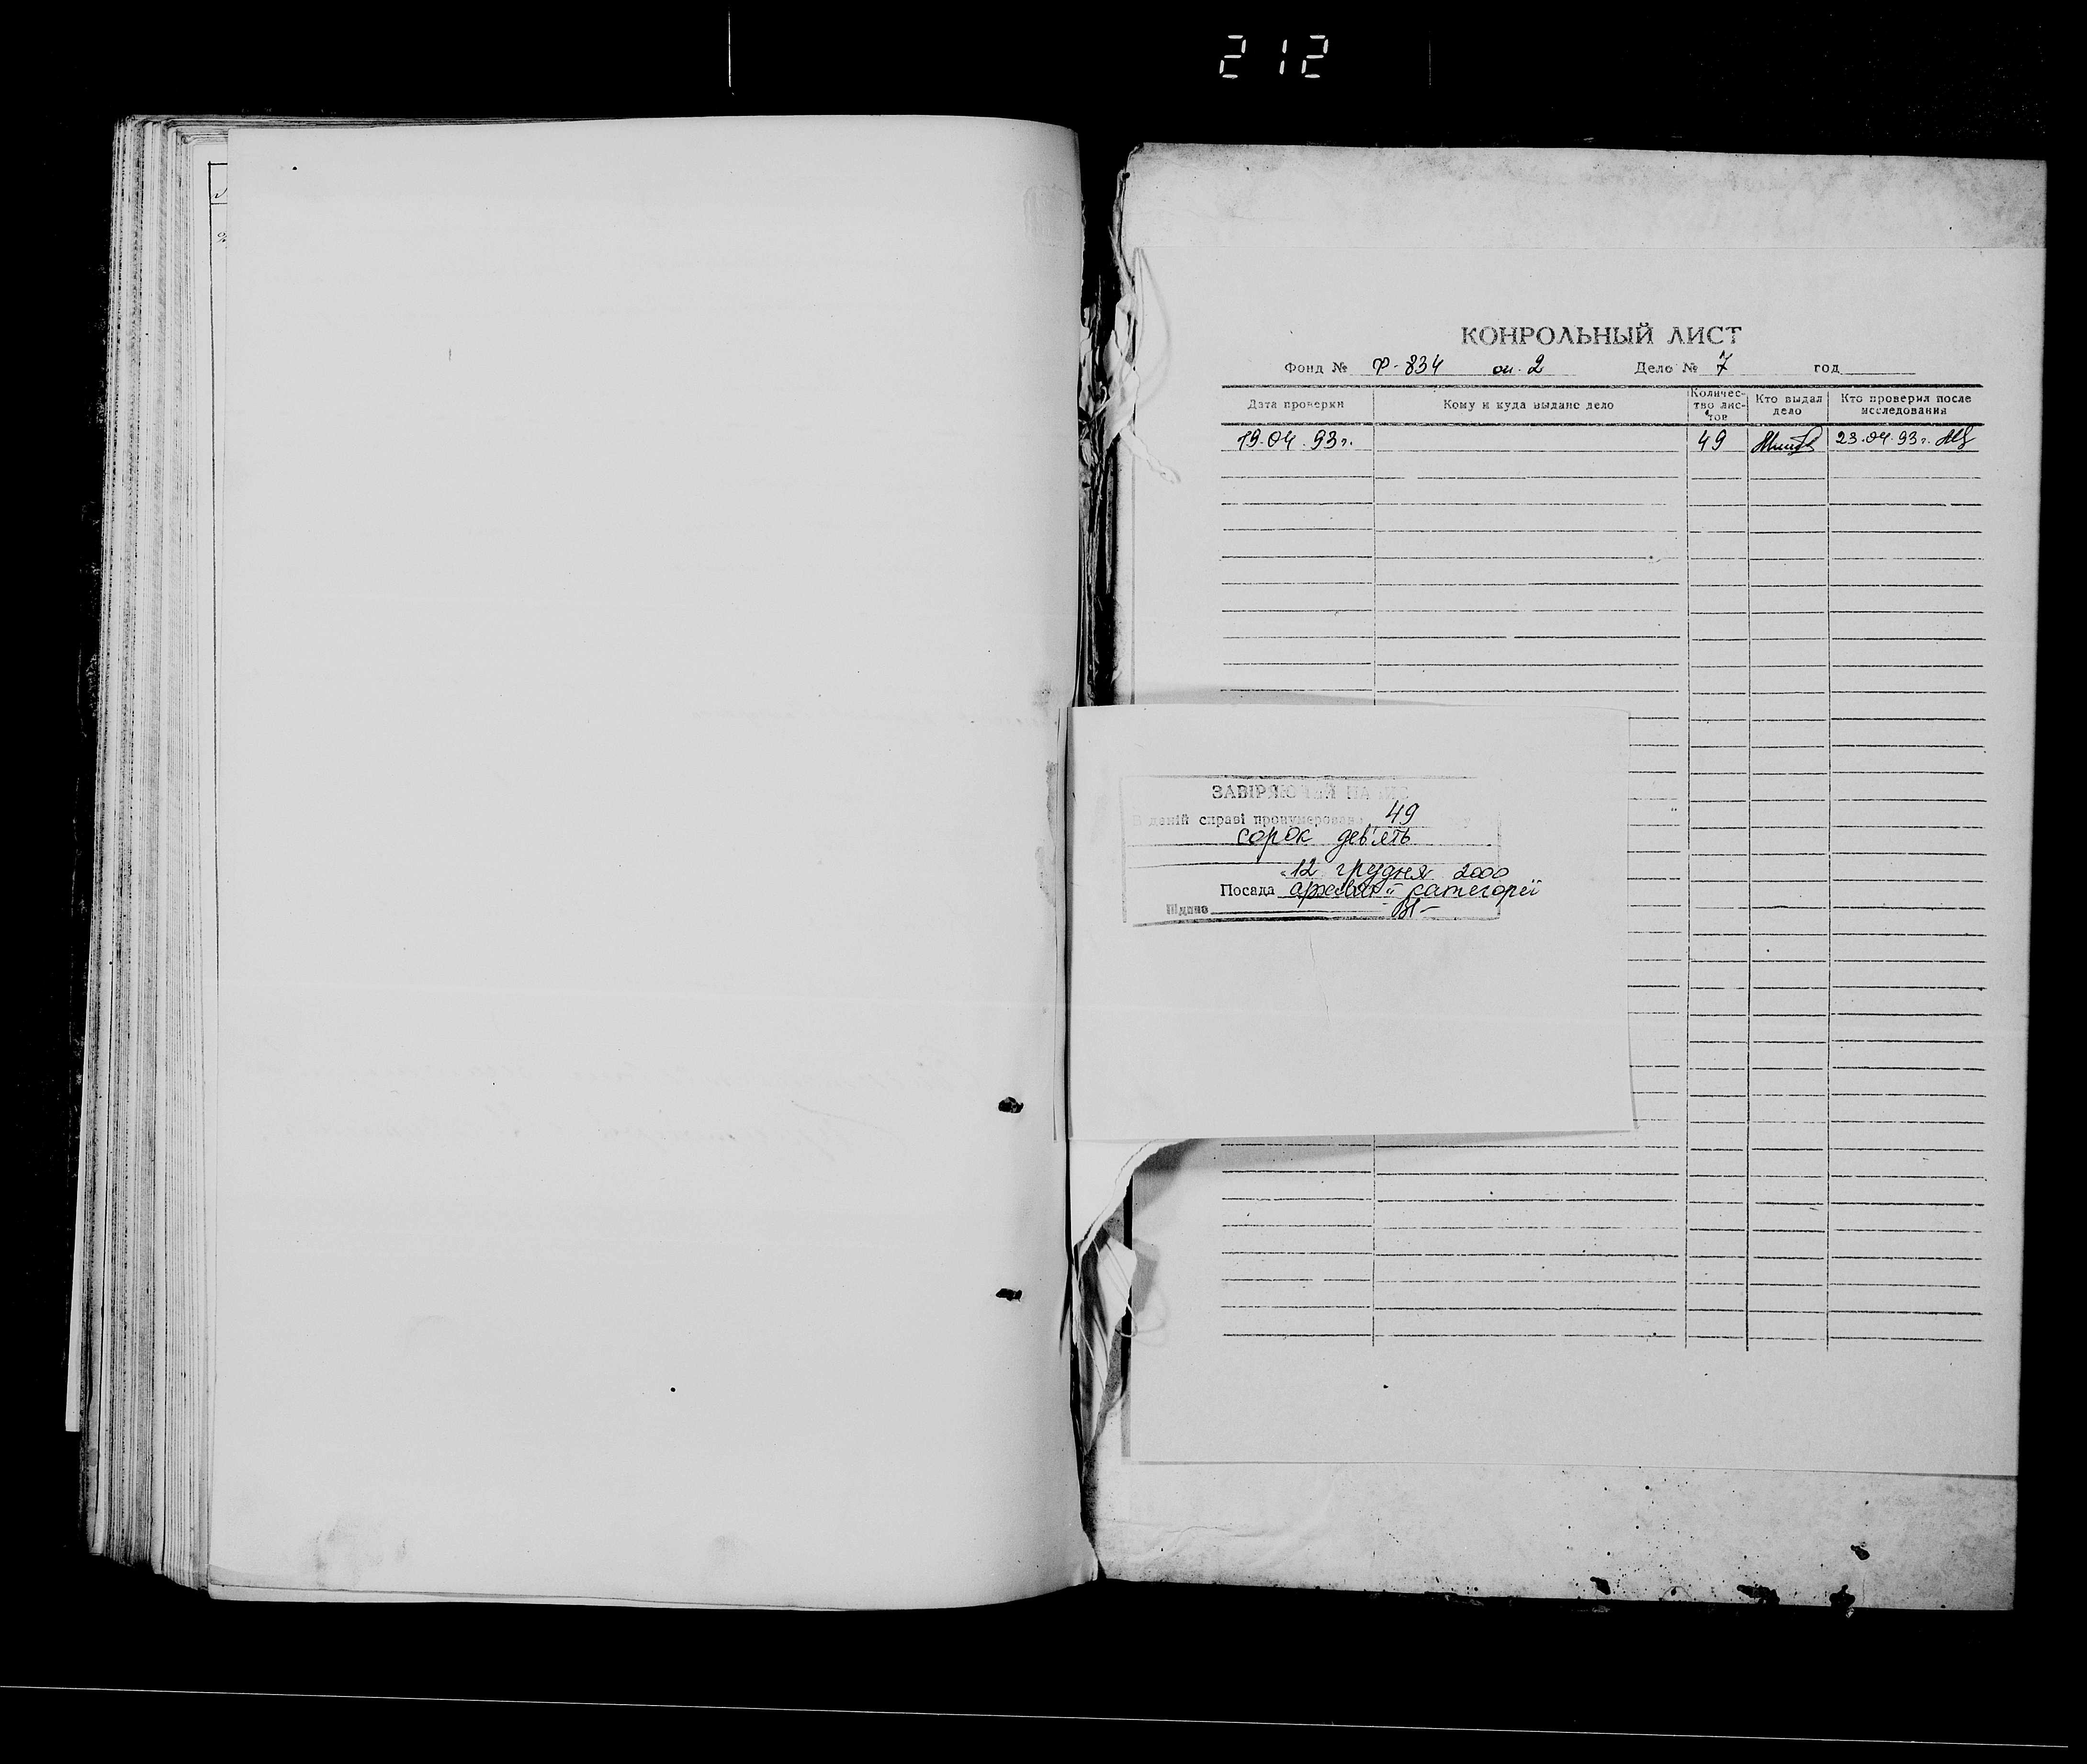 212
КОНРОЛЬНЫЙ ЛИСТ
Фонд № Ф-834 оп. 2 Дело № 7 год
Дата проверки
Кому и куда выдано дело
Количес-
тво лис-
тов
Кто выдал
дело
Кто проверил после
исследования
19.04.93г.
49
23.04.93г.
ЗАВІРЯЮЧИЙ НАПИС
В даній справі пронумеровано 49
сорок дев'ять
"12 грудня 2000
Посада архівіст II категорії
Підпис